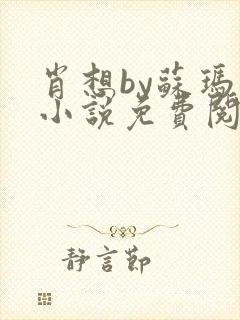 肖想by蘇瑪
小說免費閱
静言節